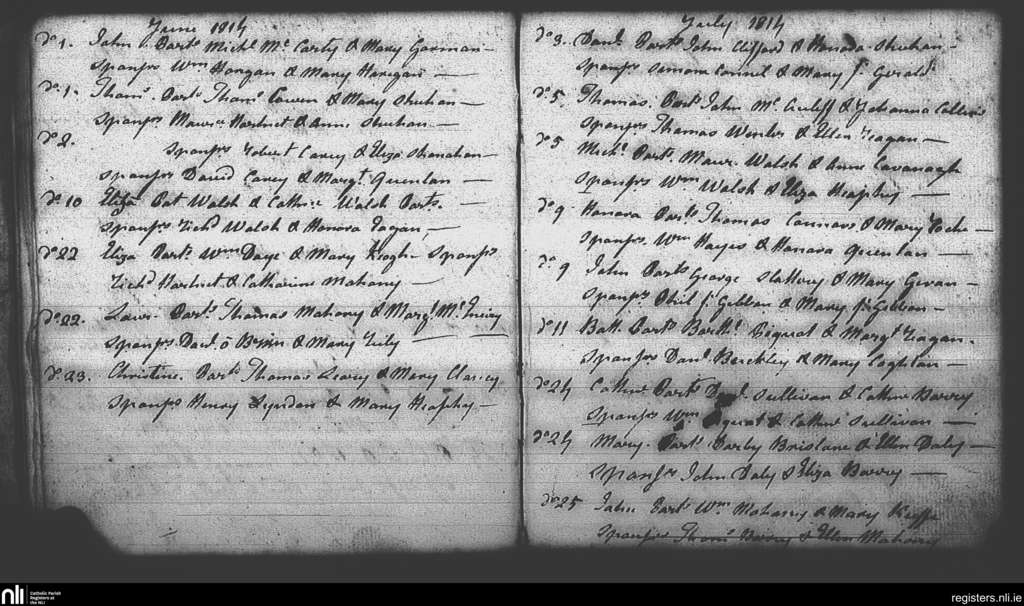 June 1814
do 1. John Parts Michl Mc Carty & Mary Gorman
Sponsrs Wm Hongan & Mary Horigan
do 1. Thoms. Parts Thoms Cowen & Mary Shehan
Sponsrs Maurce Hartnet & Anne Shehan
do 2.
Sponsrs Robert Carey & Eliza Shanahan
Sponsrs David Carey & Margt Queenlan
do 10 Eliza Pat Walsh & Cathne Walsh Parts.
Sponsrs Richd Walsh & Honora Eagan
do 22 Eliza Parts Wm Daye & Mary Keoghe Sponsrs
Richd Hartnet & Catharine Mahony
do 22. Lawr. Parts Thomas Mahony & Margt Mc
Sponsrs Danl o Brien & Mary
do 23. Christine. Parts Thomas Leary & Mary Clancey
Sponsrs Henry Lyndon & Mary Heaphy
July 1814
do 3. Danl Parts John Clifford & Honora Shehan
Sponsrs Simon Connel & Mary f. Gerald
do 5. Thomas. Parts John Mc Auliff & Johanna Collins
Sponsrs Thomas & Ellen Reagan
do 5 Michl Parts Maur. Walsh & Anne Cavanagh
Sponsrs Wm Walsh & Eliza Heaphy
do 9 Honora Parts Thomas Connors & Mary Roche
Sponsrs. Wm Hayes & Honora Queenlan
do 9 John Parts George Slattery & Mary Govan
Sponsrs Phil f. Gibbon & Mary f. Gibbon
do 11 Batt Parts Bartht Pigeat & Margt Reagan.
Sponsrs Danl Berckley & Mary Coghlan
do 24 Cathne Parts Danl Sullivan & Cathne Barry
Sponsrs Wm & Cathne Sullivan
do 24 Mary. Parts Darby Brislane & Ellen Daly
Sponsrs John Daly & Eliza Barry
do 25 John Parts Wm Mahony & Mary Keeffe
Sponsrs Thoms Barry & Ellen Mahony
nli
Catholic Parish
Registers at
the NLI
registers.nli.ie